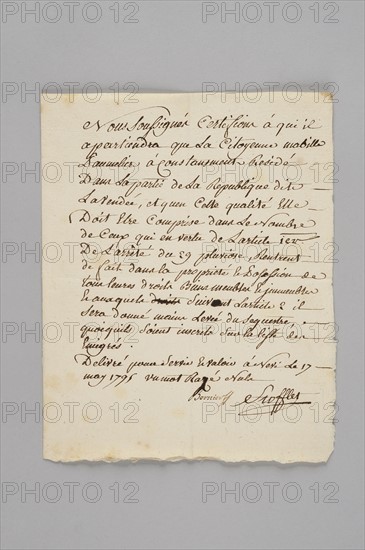 Nous Soussignés Certifions á qui il
apartiendra que La Citoyenne mabille
à Constament Residé
Dans La partie de La Republique dite
La vendée, et quen Cette qualité Elle
Doit Etre Comprise dans Le Nombre
de Ceux qui en vertu de L'article 1er
De L'arrêté du 29 pluviose, Rentrent
de fait dans la propriété & Possession de
tous leurs droits Biens meubles & immeubles
& auxquels Suivant L'article 2 il
Sera donné main Levée du Sequestre,
quoiquils Soient inscrits Sur la liste des
Emigrés.
Délivré pour Servir & valoir á le 17
may 1795 un mot Rayé Nul
Bernier Stofflet
PHOTO 12